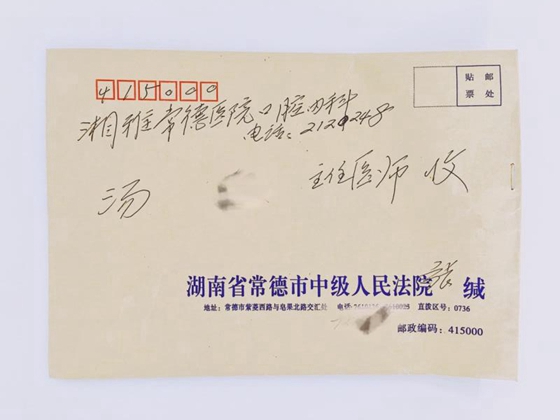 415000
贴邮
票处
湘雅常德医院口腔内科
电话:2129248
汤 主任医师 收
湖南省常德市中级人民法院 张 缄
地址:常德市紫菱西路与皂果北路交汇处 电话: 直拨区号:0736
邮政编码:415000